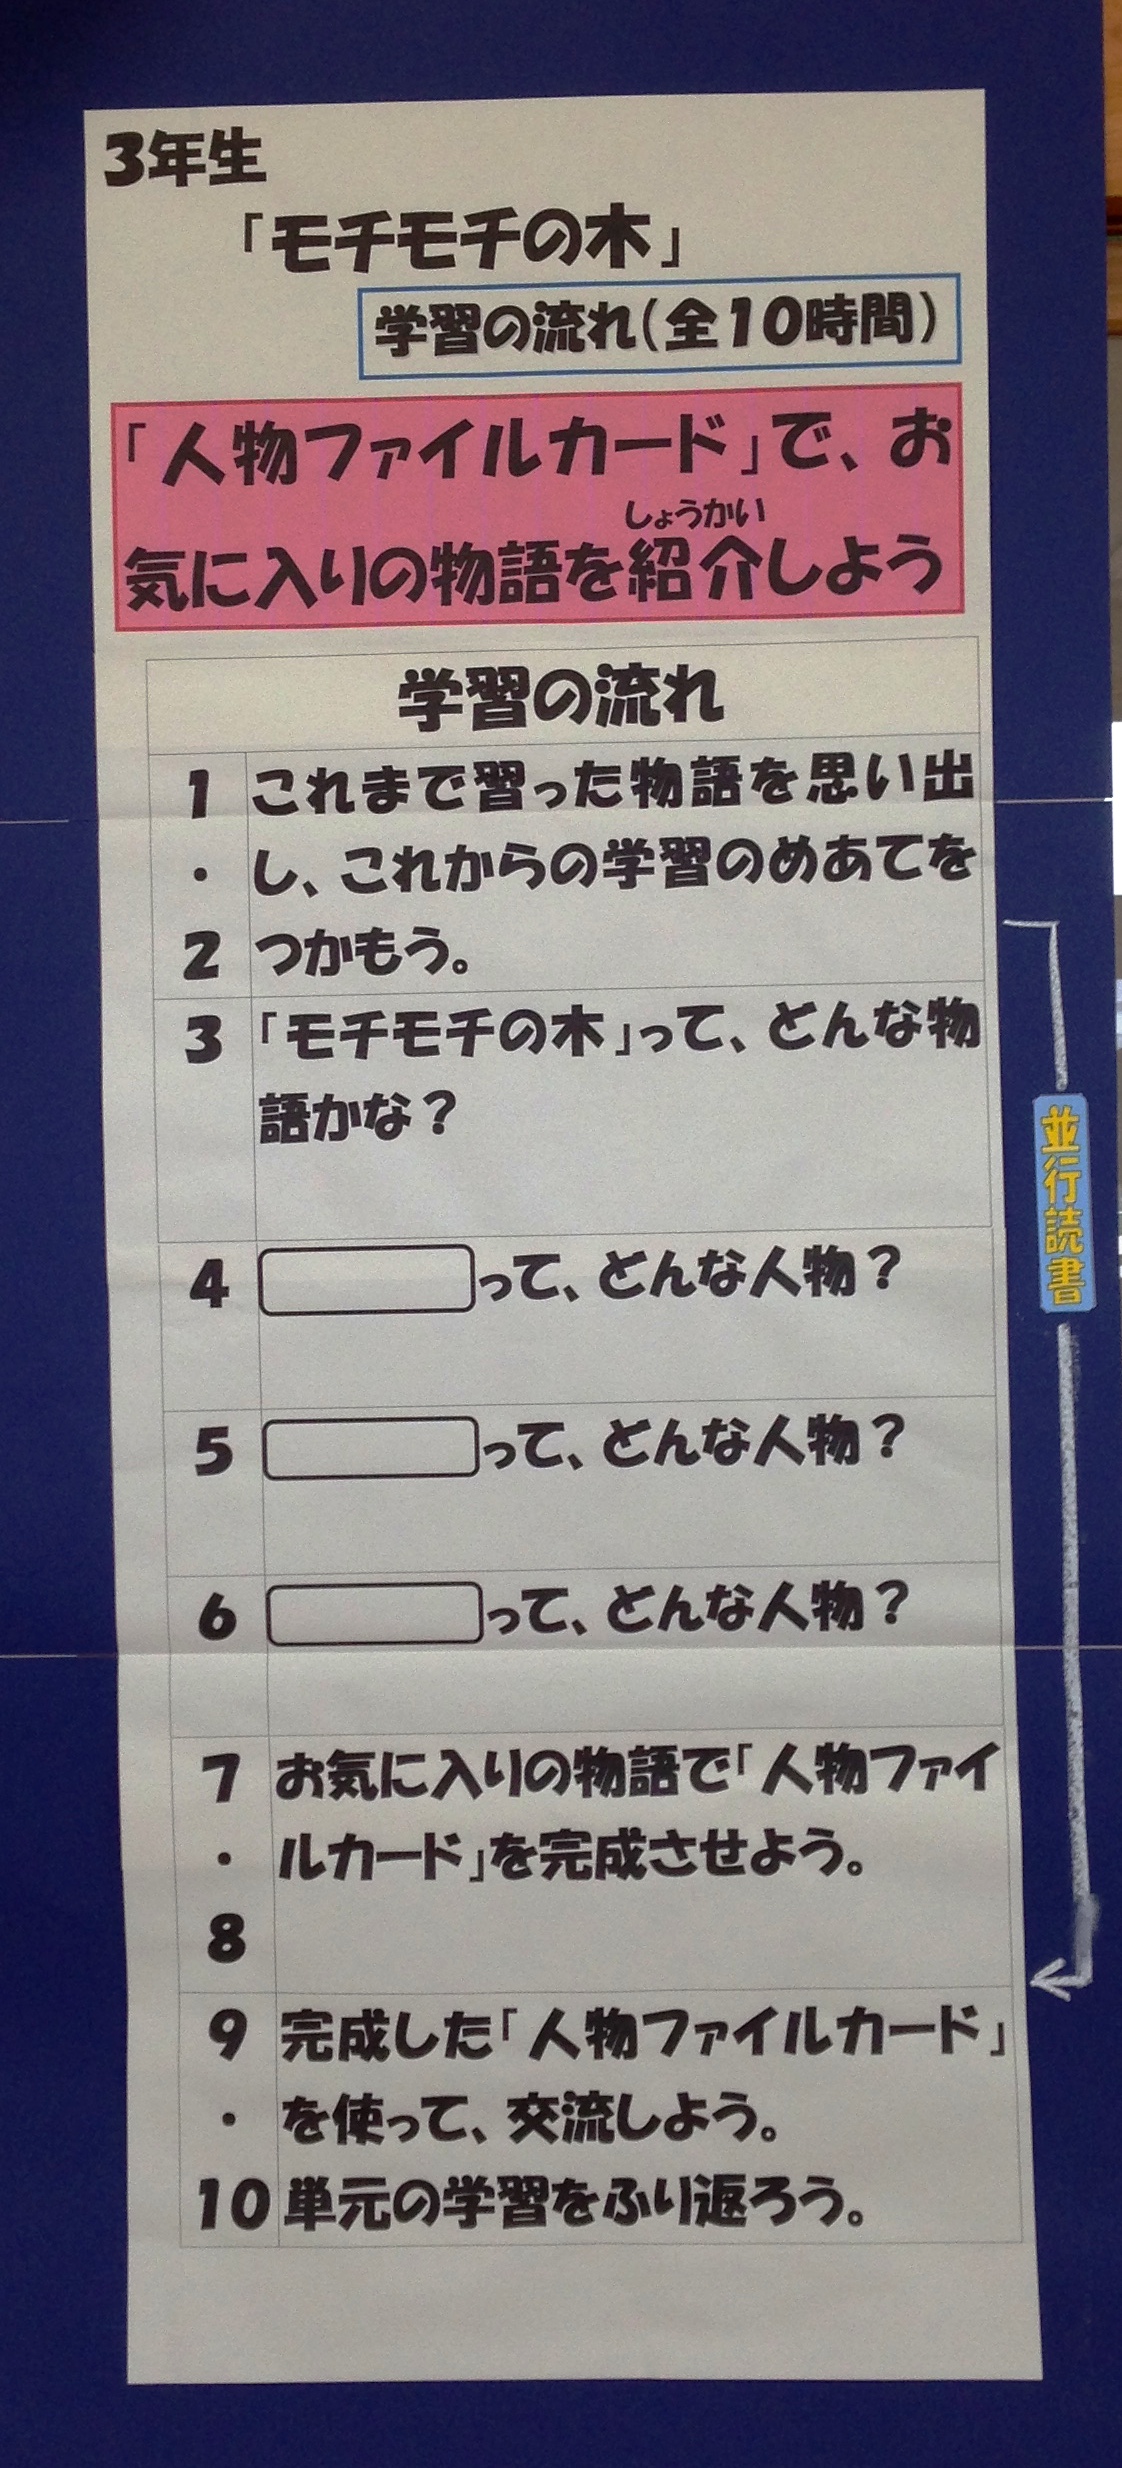 3年生
「モチモチの木」
学習の流れ(全10時間)
「人物ファイルカード」で、お
しょうかい
気に入りの物語を紹介しよう
学習の流れ
1 これまで習った物語を思い出
・ し、これからの学習のめあてを
2 つかもう。
3 「モチモチの木」って、どんな物
語かな？
4 って、どんな人物？
5 って、どんな人物？
6 って、どんな人物？
7 お気に入りの物語で「人物ファイ
・ ルカード」を完成させよう。
8
9 完成した「人物ファイルカード」
・ を使って、交流しよう。
10 単元の学習をふり返ろう。
並行読書